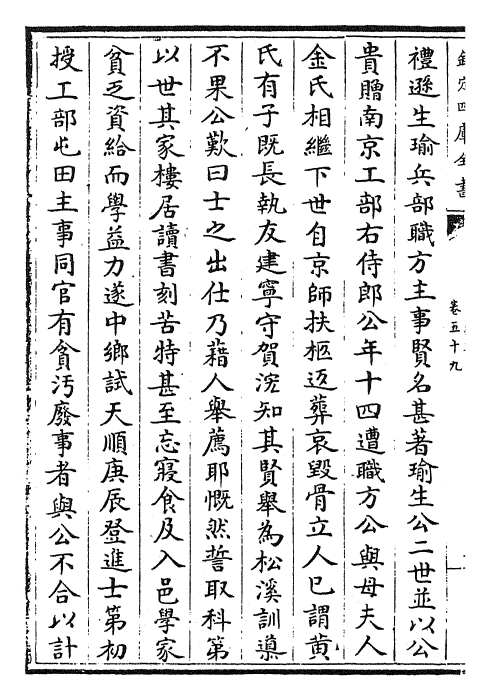 欽定四庫全書
卷五十九
禮遜生瑜兵部職方主事賢名甚著瑜生公二世並以公
貴贈南京工部右侍郎公年十四遭職方公與母夫人
金氏相繼下世自京師扶柩返葬哀毀骨立人已謂黄
氏有子既長執友建寧守賀浤知其賢舉為松溪訓導
不果公歎曰士之出仕乃藉人舉薦耶慨然誓取科第
以世其家樓居讀書刻苦特甚至忘寢食及入邑學家
貧乏資給而學益力遂中鄉試天順庚辰登進士第初
授工部屯田主事同官有貪汚廢事者與公不合以計